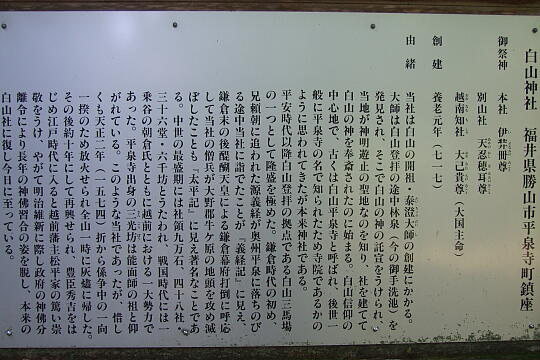 白山神社　福井県勝山市平泉寺町鎮座
御祭神　本社　伊弉冊尊
別山社　天忍穂耳尊
越南知社　大己貴尊（大国主命）
創建　養老元年（七一七）
由緒　当社は白山の開祖・泰澄大師の創建にかかる。
大師は白山登拝の途中林泉（今の御手洗池）を
発見され、そこで白山の神の託宣をうけられ、
当地が神明遊止の聖地なのを知り、社を建てて
白山の神を奉斎されたのに始まる。白山信仰の
中心地で、古くは白山平泉寺と呼ばれ、後世一
般に平泉寺の名で知られたため寺院であるかの
ように思われてきたが本来神社である。
平安時代以降白山登拝の拠点である白山三馬場
の一つとして隆盛を極めた。鎌倉時代の初め、
兄頼朝に追われた源義経が奥州平泉に落ちのび
る途中当社に詣でたことが『義経記』に見え、
鎌倉末の後醍醐天皇による鎌倉幕府打倒に呼応
して当社の僧兵が大野郡牛ケ原の地頭を攻め滅
ぼしたことも『太平記』に見え著名なことであ
る。中世の最盛期には社領九万石、四十八社・
三十六堂・六千坊とうたわれ、戦国時代には一
乗谷の朝倉氏とともに越前における一大勢力で
あった。平泉寺出身の三光坊は能面師の祖と仰
がれている。このような当社であったが、惜し
くも天正二年（一五七四）折から係争中の一向
一揆のため放火せられ全山一時に灰燼に帰した。
その後約十年にして再興せられ、豊臣秀吉をは
じめ江戸時代に入ると越前藩主松平家の篤い崇
敬をうけ、やがて明治維新に際し政府の神佛分
離令により長年の神佛習合の姿を脱し、本来の
白山神社に復し今日に至っている。